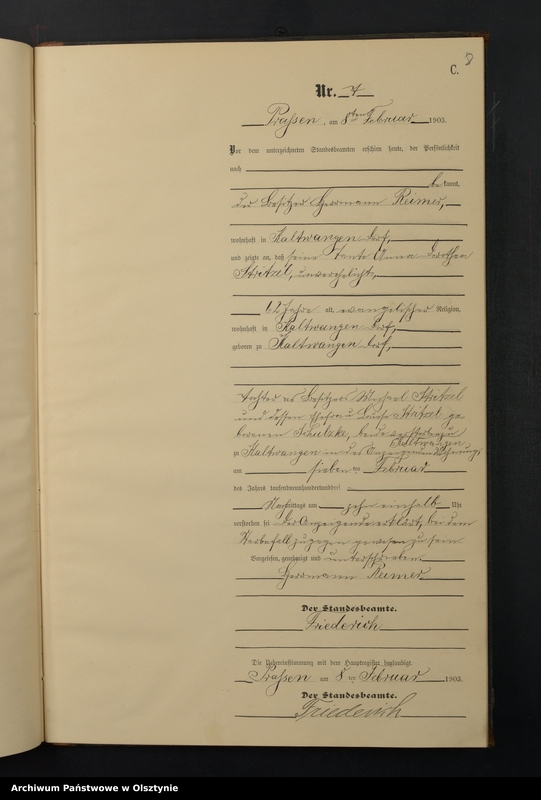 8
C.
Nr. 7
Prassen, am 8ten Februar 1903.
Vor dem unterzeichneten Standesbeamten erschien heute, der Persönlichkeit
nach
bekannt,
der Besitzer Herrmann Reimer,
wohnhaft in Kaltwangen Dorf,
und zeigte an, daß seine Tante Anna Dorothea
Stritzel, unverehelicht,
62 Jahre alt, evangelischer Religion,
wohnhaft in Kaltwangen Dorf,
geboren zu Kaltwangen Dorf,
Tochter des Besitzers Michael Stritzel
und dessen Ehefrau Louise Stritzel ge
borenen Schulzke, beide verstorben zu
Kaltwangen,
zu Kaltwangen in des Anzeigenden Wohnung,
am sieben ten Februar
des Jahres tausendneunhundertunddrei
Nachmittags um zehn einhalb Uhr
verstorben sei der Anzeigende erklärt, bei dem
Sterbefall zugegen gewesen zu sein
Vorgelesen, genehmigt und unterschrieben
Herrmann Reimer
Der Standesbeamte.
Friederich
Die Uebereinstimmung mit dem Hauptregister beglaubigt.
Prassen am 8 ten Februar 1903.
Der Standesbeamte.
Friederich
Archiwum Państwowe w Olsztynie